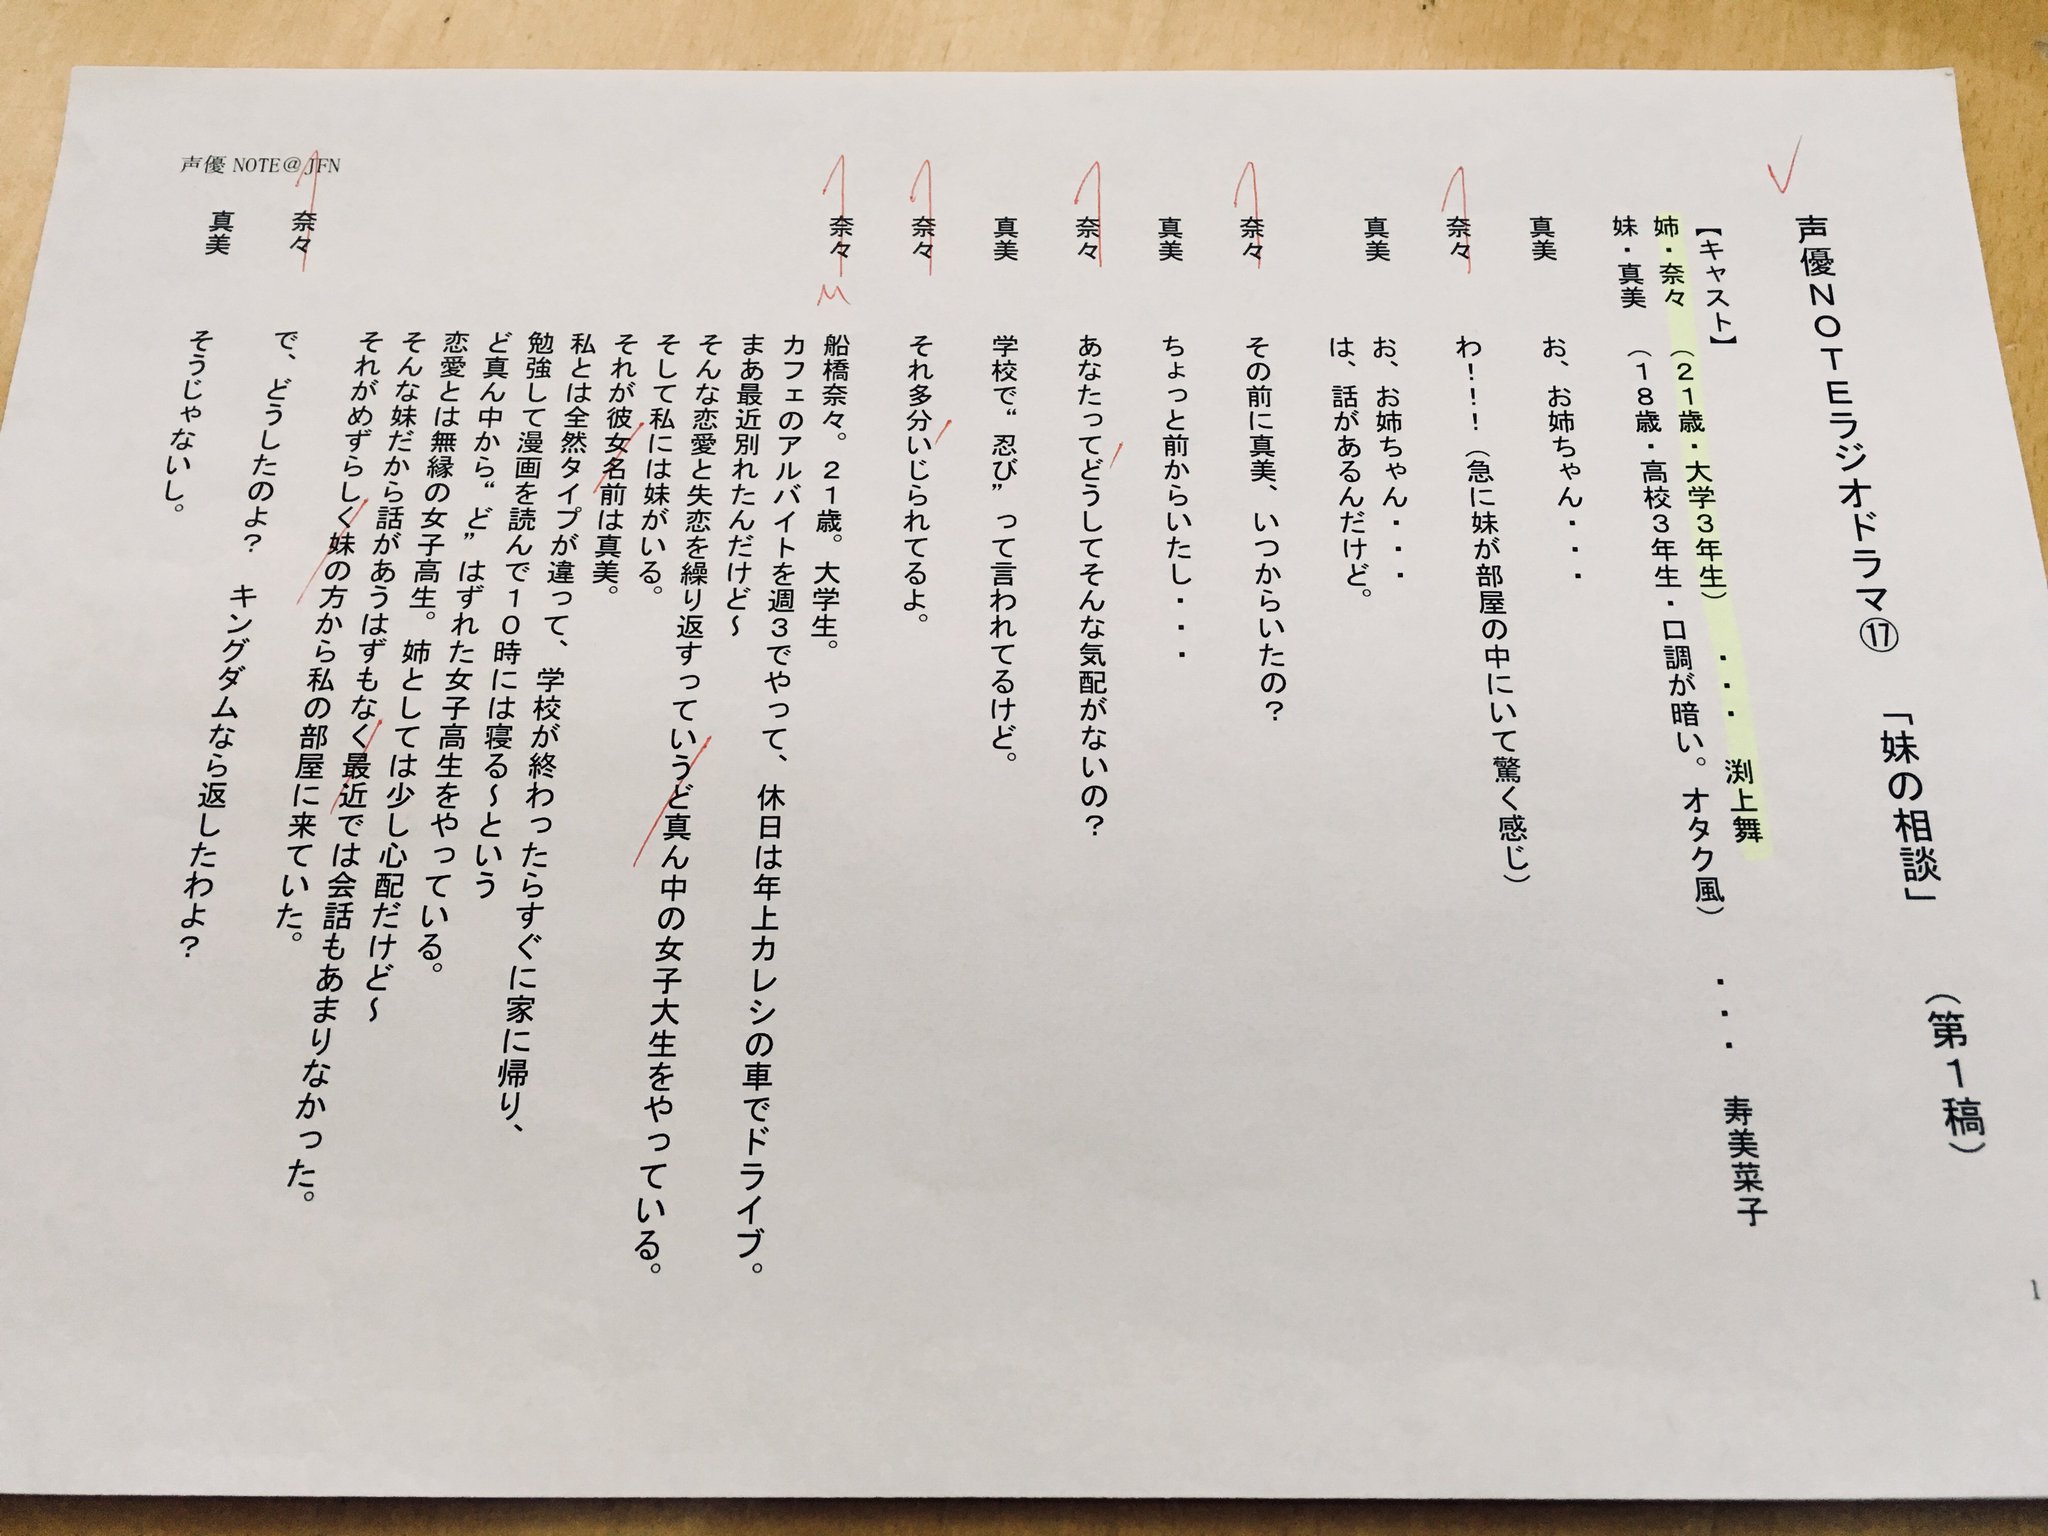 声優NOTE@JFN
声優NOTEラジオドラマ⑰　「妹の相談」　（第1稿）
【キャスト】
姉・奈々　（21歳・大学3年生）　・・・　渕上舞
妹・真美　（18歳・高校3年生・口調が暗い。オタク風）　・・・　寿美菜子
真美　お、お姉ちゃん・・・
奈々　わ！！！（急に妹が部屋の中にいて驚く感じ）
真美　お、お姉ちゃん・・・
は、話があるんだけど。
奈々　その前に真美、いつからいたの？
真美　ちょっと前からいたし・・・
奈々　あなたってどうしてそんな気配がないの？
真美　学校で“忍び”って言われてるけど。
奈々　それ多分いじられてるよ。
奈々 M　船橋奈々。21歳。大学生。
カフェのアルバイトを週3でやって、休日は年上カレシの車でドライブ。
まあ最近別れたんだけど～
そんな恋愛と失恋を繰り返すっていうど真ん中の女子大生をやっている。
そして私には妹がいる。
それが彼女名前は真美。
私とは全然タイプが違って、学校が終わったらすぐに家に帰り、
勉強して漫画を読んで10時には寝る～という
ど真ん中から“ど”はずれた女子高生をやっている。
恋愛とは無縁の女子高生。姉としては少し心配だけど～
そんな妹だから話があうはずもなく最近では会話もあまりなかった。
それがめずらしく妹の方から私の部屋に来ていた。
奈々　で、どうしたのよ？　キングダムなら返したわよ？
真美　そうじゃないし。
1